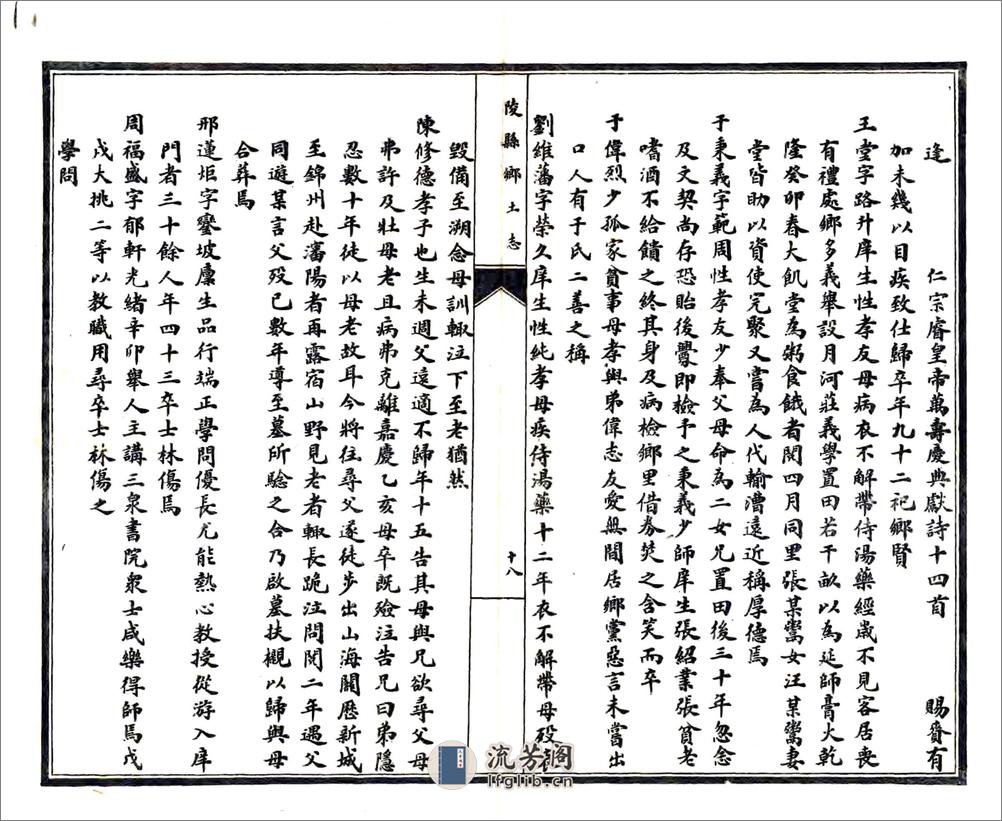 逢　仁宗睿皇帝萬壽慶典獻詩十四首　賜賚有
加未幾以目疾致仕歸卒年九十二祀鄉賢
王堂字路升庠生性孝友母病衣不解帶侍湯藥經歲不見客居喪
有禮處鄉多義舉設月河莊義學置田若干畝以為延師膏火乾
隆癸卯春大飢堂為粥食餓者閱四月同里張某鬻女汪某鬻妻
堂皆助以資使完聚又嘗為人代輸漕遠近稱厚德焉
于秉義字範周性孝友少奉父母命為二女兄置田後三十年忽念
及文契尚存恐貽後釁即檢予之秉義少師庠生張紹業張貧老
嗜酒不給饋之終其身及病檢鄉里借券焚之含笑而卒
于偉烈少孤家貧事母孝與弟偉志友愛無間居鄉黨惡言未嘗出
口人有于氏二善之稱
劉維藩字榮久庠生性純孝母疾侍湯藥十二年衣不解帶母歿哀
陵縣鄉土志
十八
毀備至溯念母訓輒泣下至老猶然
陳修德孝子也生未週父遠適不歸年十五告其母與兄欲尋父母
弗許及壯母老且病弗克離嘉慶乙亥母卒既殮泣告兄曰弟隱
忍數十年徒以母老故耳今將往尋父遂徒步出山海關歷新城
至錦州赴瀋陽者再露宿山野見老者輒長跪泣問閱二年遇父
同遊某言父歿已數年導至墓所驗之合乃啟墓扶櫬以歸與母
合葬焉
邢蓮炬字鑾坡廩生品行端正學問優長尤能熱心教授從游入庠
門者三十餘人年四十三卒士林傷焉
周福盛字郁軒光緒辛卯舉人主講三泉書院衆士咸樂得師焉戊
戌大挑二等以教職用尋卒士林傷之
學問
流芳阁
lfglib.cn